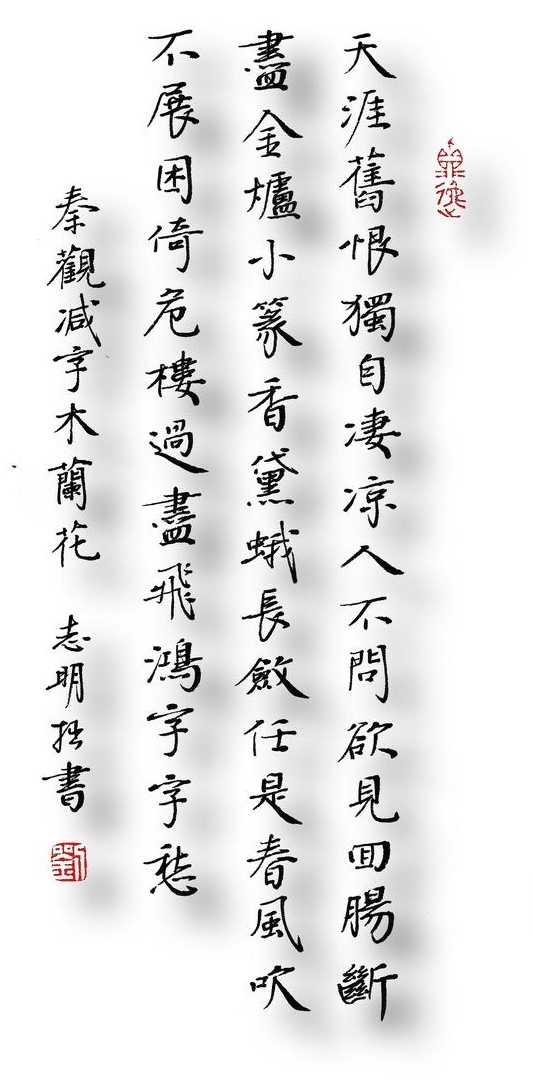 天涯舊恨獨自凄凉人不問欲見回腸斷
盡金爐小篆香黛蛾長斂任是春風吹
不展困倚危樓過盡飛鴻字字愁
秦觀减字木蘭花 志明拙書
劉